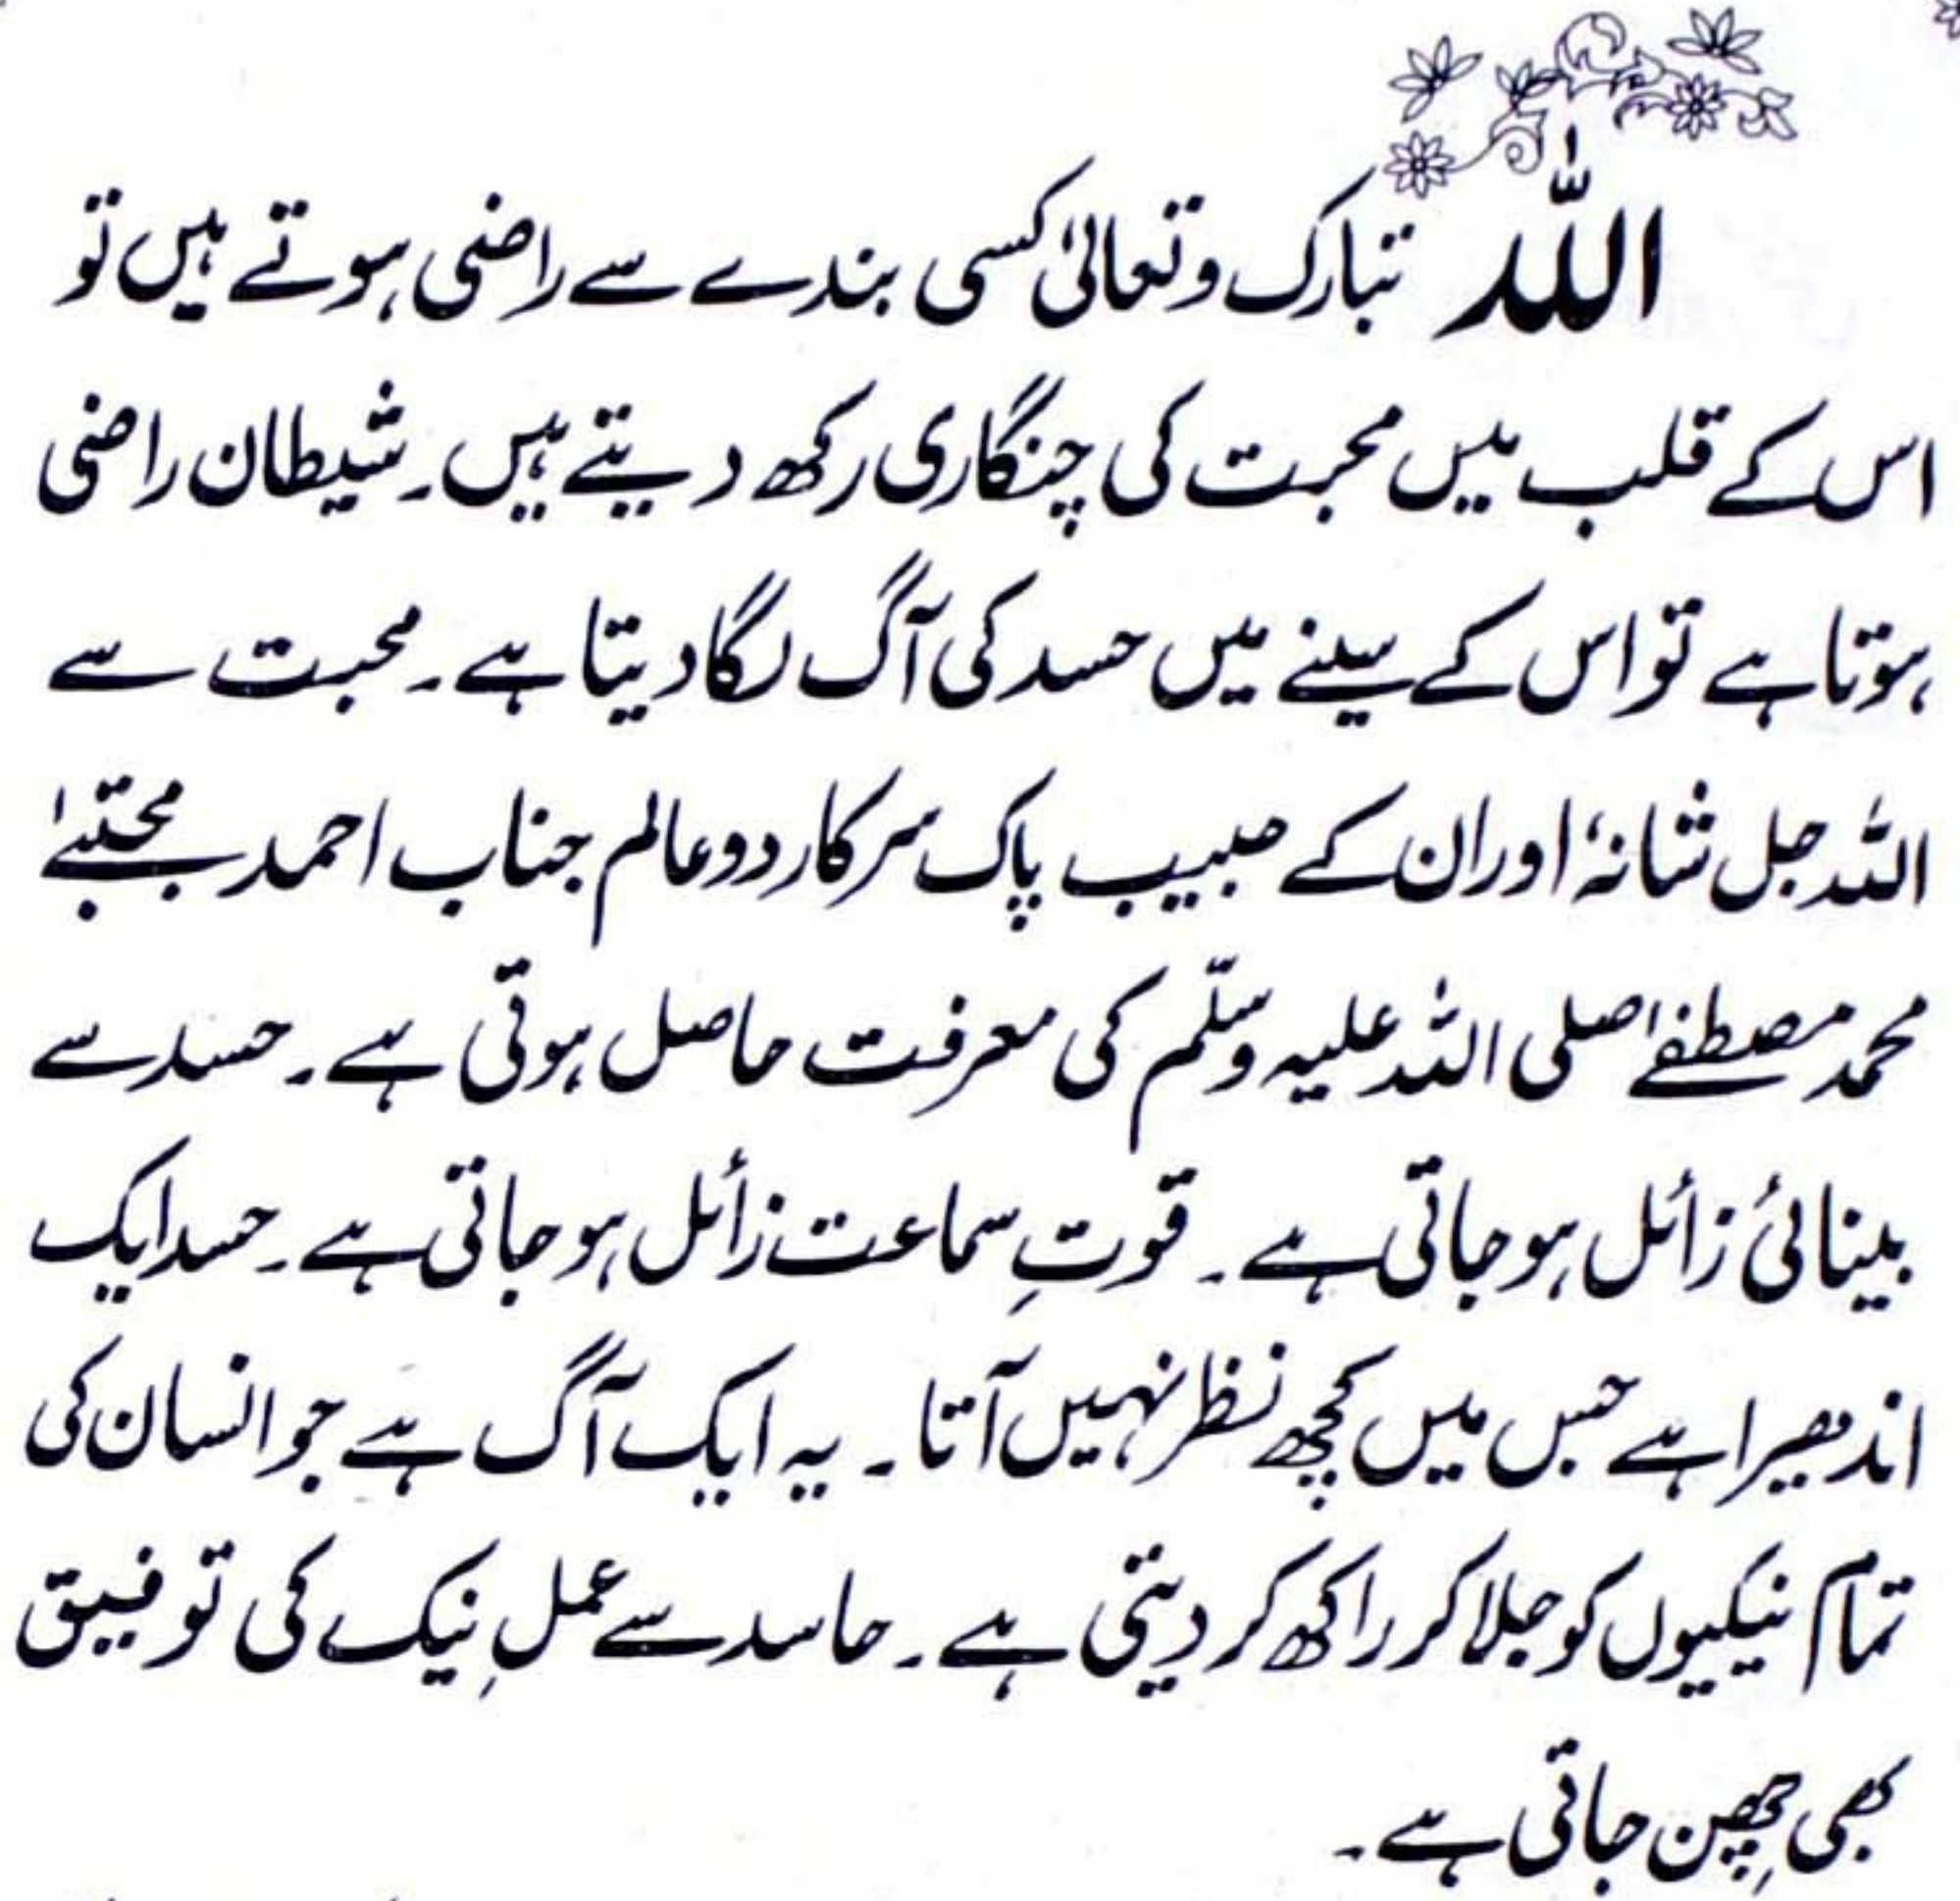 اللہ تبارک وتعالیٰ کسی بندے سے راضی ہوتے ہیں تو
اس کے قلب میں محبت کی چنگاری رکھ دیتے ہیں۔ شیطان راضی
ہوتا ہے تو اس کے سینے میں حسد کی آگ لگا دیتا ہے۔ محبت سے
اللہ جل شانہٗ اور ان کے حبیب پاک سرکار دو عالم جناب احمد مجتبےٰ
محمد مصطفےٰ صلی اللہ علیہ وسلّم کی معرفت حاصل ہوتی ہے۔ حسد سے
بینائی زائل ہو جاتی ہے۔ قوتِ سماعت زائل ہو جاتی ہے۔ حسد ایک
اندھیرا ہے جس میں کچھ نظر نہیں آتا۔ یہ ایک آگ ہے جو انسان کی
تمام نیکیوں کو جلا کر راکھ کر دیتی ہے۔ حاسد سے عملِ نیک کی توفیق
بھی چھِن جاتی ہے۔